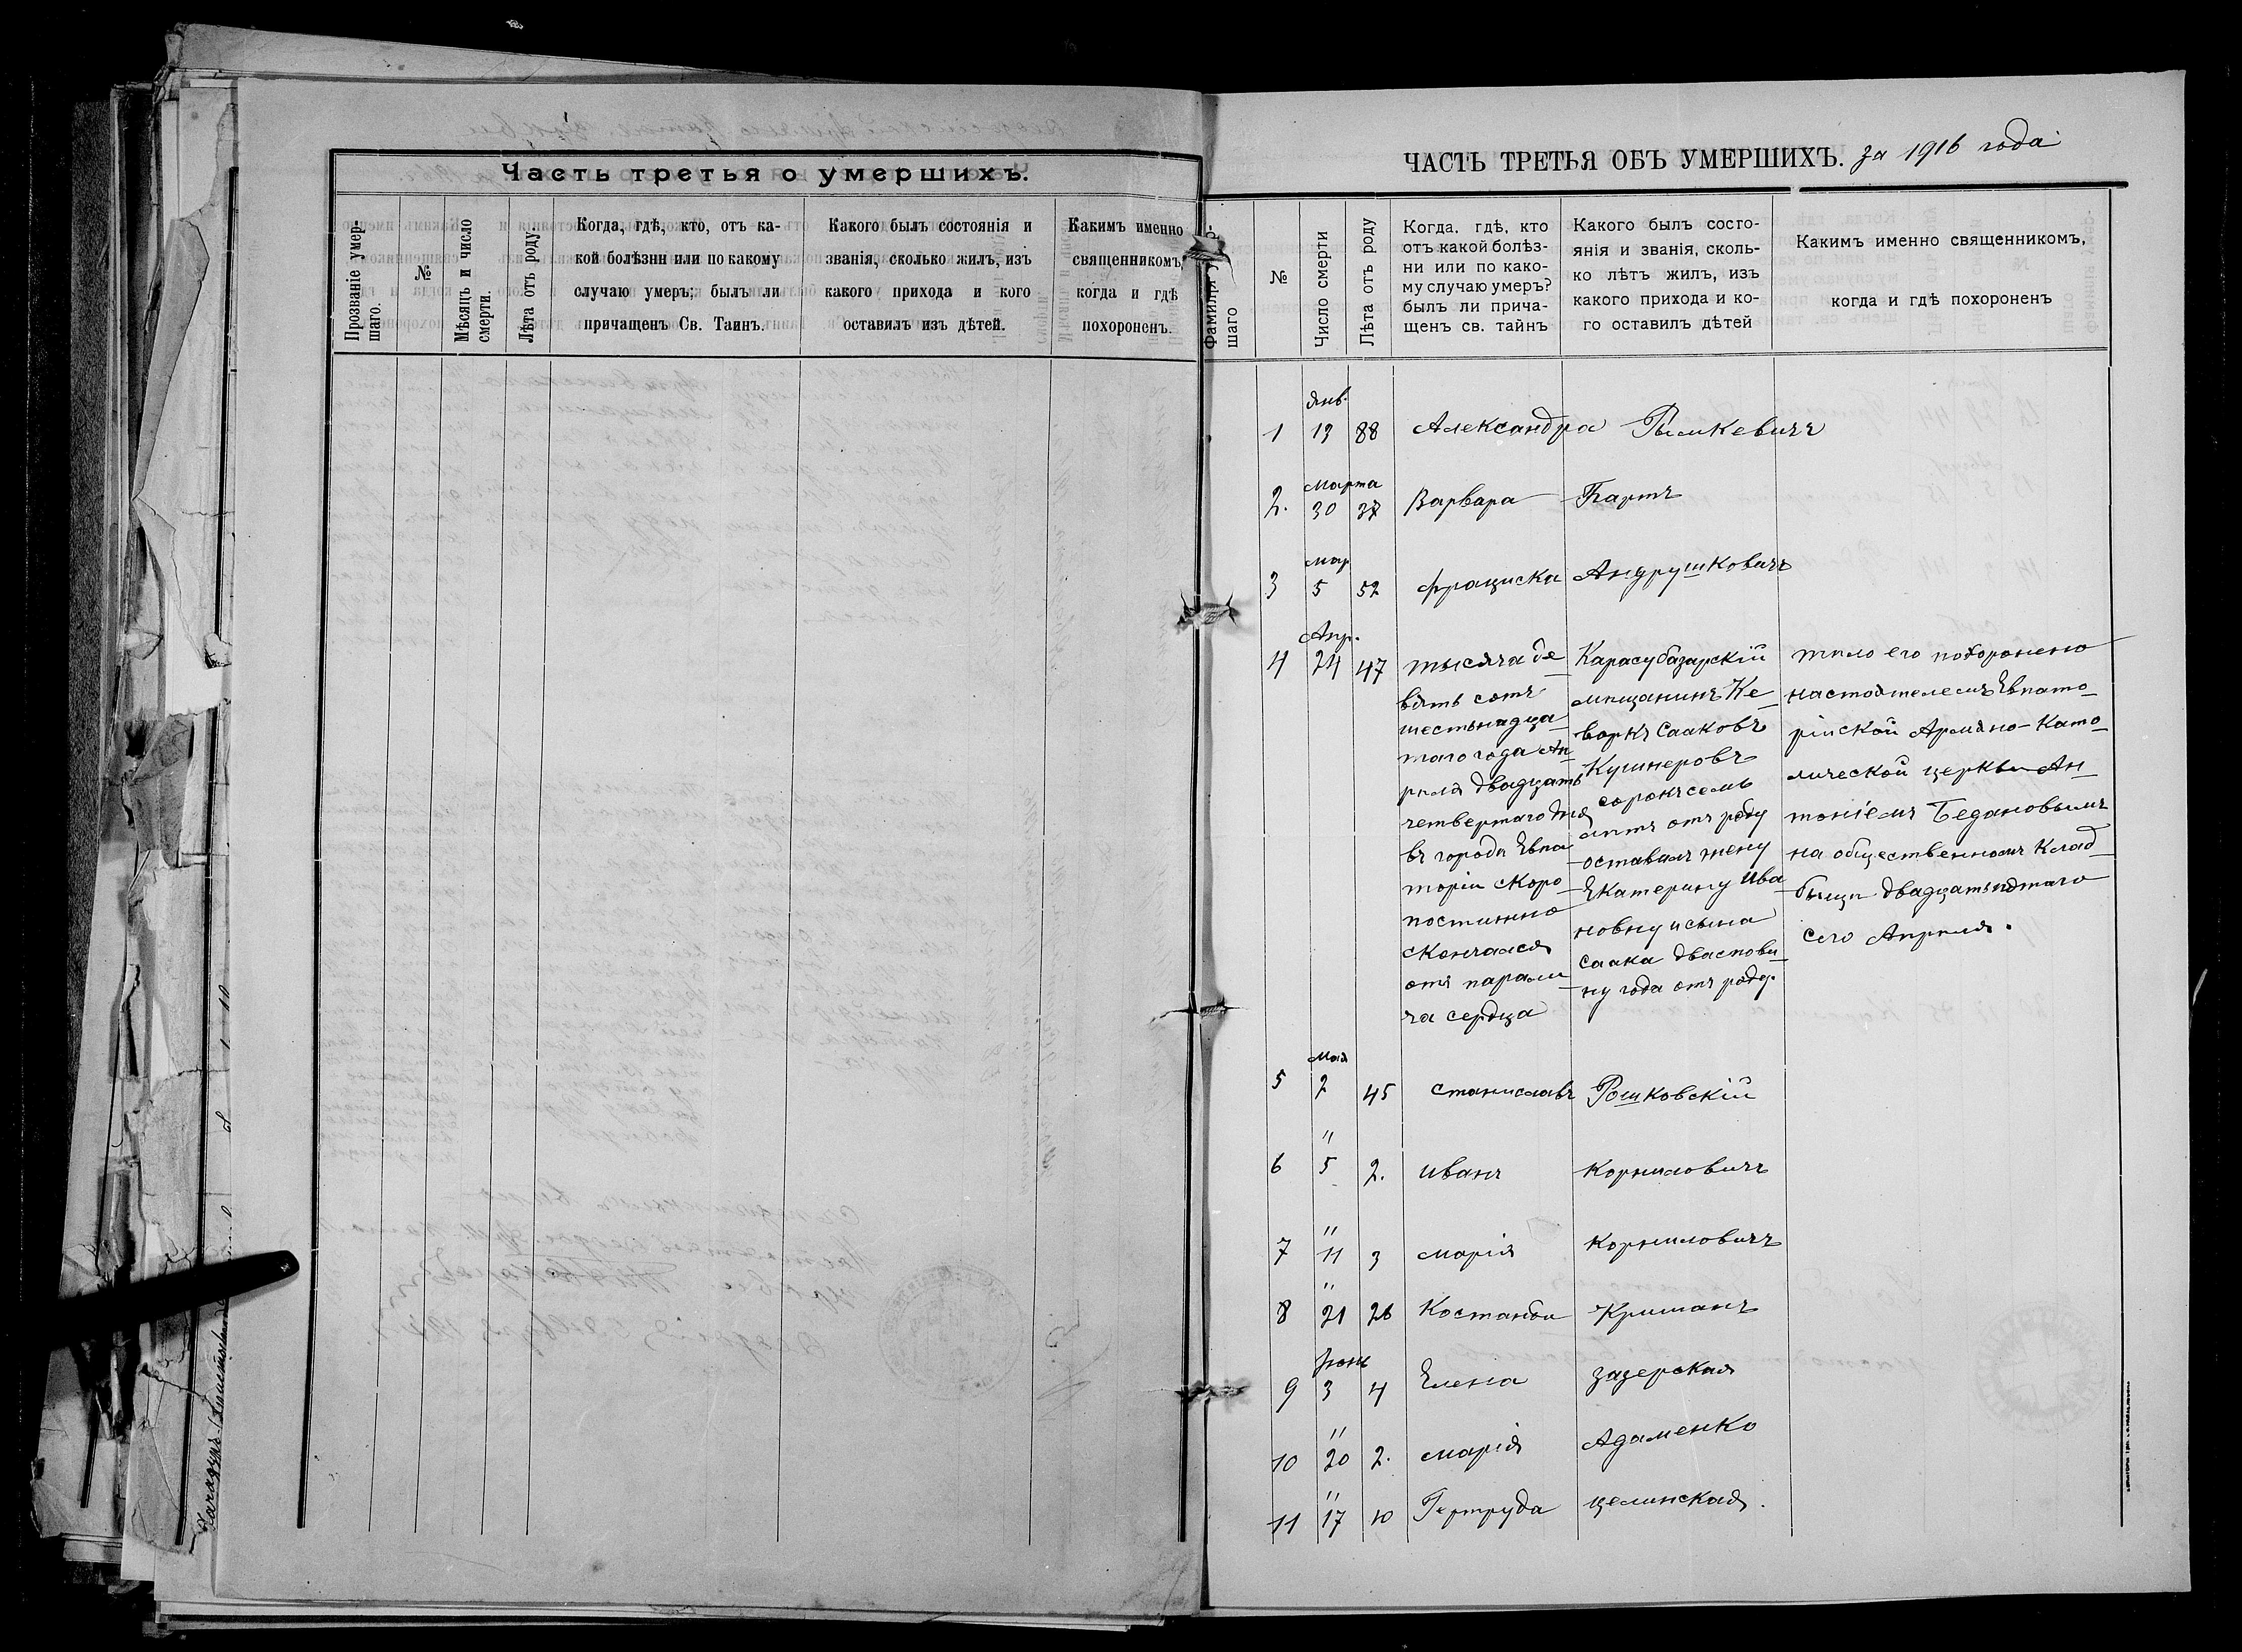 Часть третья о умершихъ.
Прозваніе умер-
шаго.
№
Мѣсяцъ и число
смерти.
Лѣта отъ роду.
Когда, гдѣ, кто, отъ ка-
кой болѣзни или по какому
случаю умеръ; былъ ли
причащенъ Св. Таинъ.
Какого былъ состоянія и
званія, сколько жилъ, изъ
какого прихода и кого
оставилъ изъ дѣтей.
Каким именно
священникомъ,
когда и гдѣ
похороненъ.
ЧАСТЬ ТРЕТЬЯ ОБЪ УМЕРШИХЪ. за 1916 года
шаго
№
Число смерти
Лѣта отъ роду
Когда, гдѣ, кто
отъ какой болѣз-
ни или по како-
му случаю умеръ?
былъ ли прича-
щенъ св. тайнъ
Какого былъ состо-
янія и званія, сколь-
ко лѣтъ жилъ, изъ
какого прихода и ко-
го оставилъ дѣтей
Какимъ именно священникомъ,
когда и гдѣ похороненъ
Янв.
1 19 88 Александра Рымкевичъ
Марта
2. 30 37 Варвара Бартъ
Мар
3 5 52 Франциска Андрушковичъ
Апр.
4 24 47
тысяча де
вять сотъ
шестьнадца
таго года Ап
рѣля двадцать
четвертаго дня
въ городѣ Евпа
торіи скоро
постижно
скончался
отъ парали
ча сердца
Карасубазарскій
мѣщанинъ Ке
воркъ Сааковъ
Кушнеровъ
сорокъ семь
лѣтъ отъ роду
оставилъ жену
Екатерину Ива
новну и сына
Саака два споло
ну года отъ роду.
тѣло его похоронено
настоятелемъ Евпато
рійской Армяно-Като
лической церкви Ан
тоніемъ Бедановымъ
на общественномъ клад
бищѣ двадцатьпятаго
сего Апрѣля.
Мая
5 2 45 Станиславъ Рошковскій
"
6 5 2. Иванъ Корниловичъ
"
7 11 3 Марія Корниловичъ
"
8 21 26
Іюнь
9 3 4 Елена Зазерская
"
10 20 2. Марія Адаменко
"
11 17 10 Гертруда Целинская.